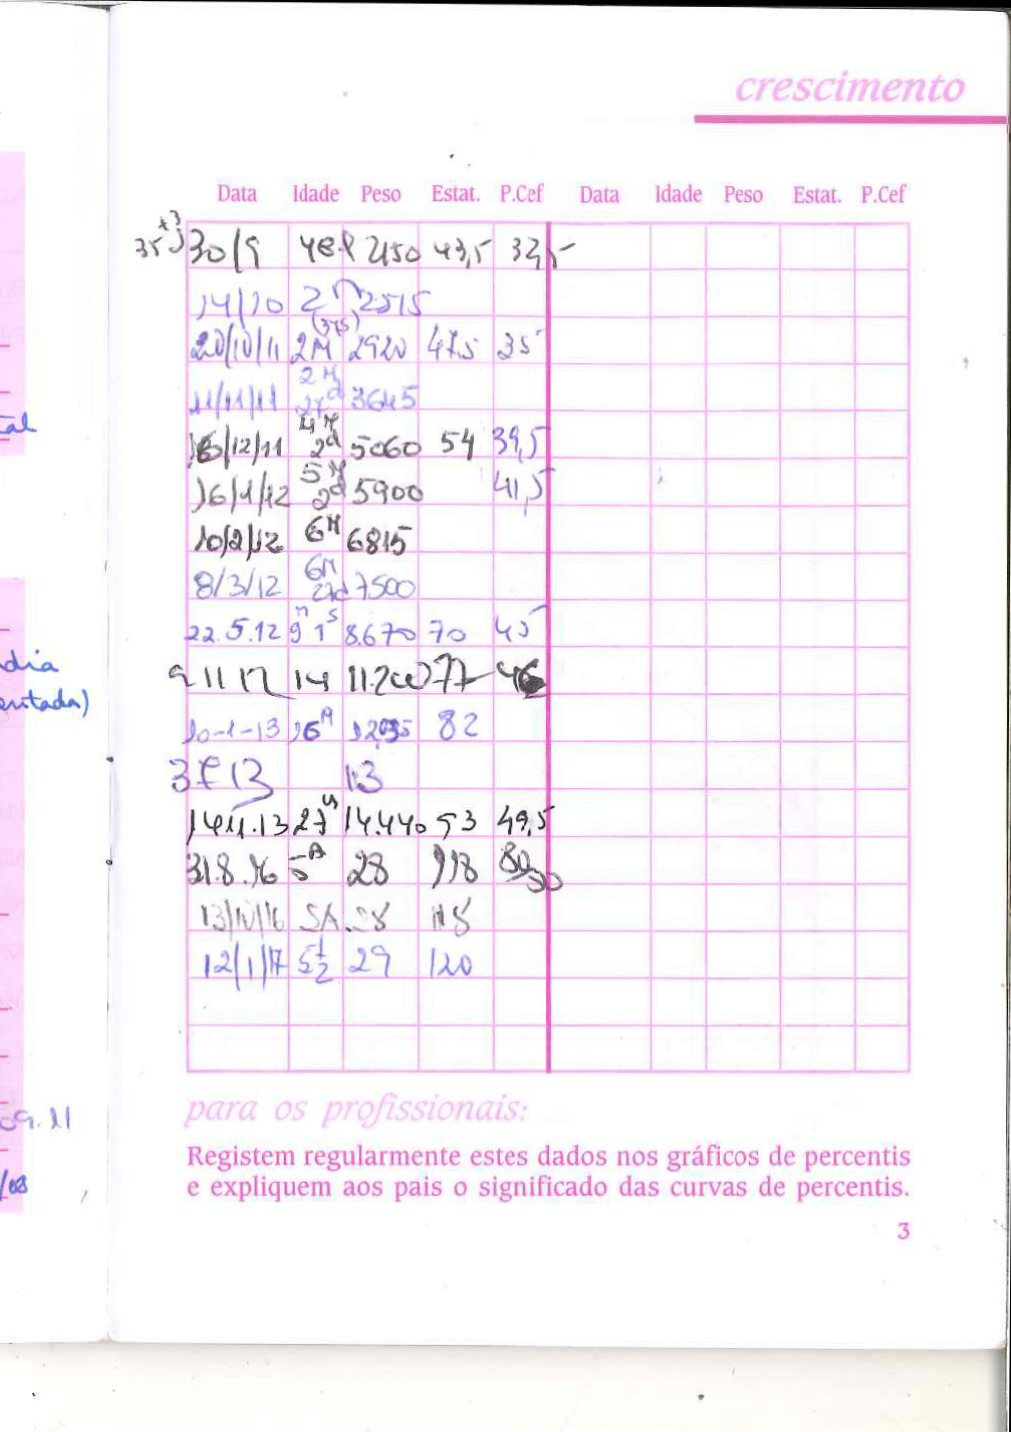 crescimento
Data Idade Peso Estat. P.Cef Data Idade Peso Estat. P.Cef
30/9 2150 43,5 32,5
14/10 2515
20/10/11 2M 2920 47.5 35
2M
11/11/11 27d 3645
4M
/12/11 2d 5060 54 39,5
5M
16/1/12 2d 5900 41,5
10/2/12 6M 6815
6M
8/3/12 27d 7500
22.5.12 9M 1S 8.670 70 45
9 11 12 14 11.200 77 46
10-1-13 16M 82
13
14.11.13 27M 14.440 93 49,5
31.8.16 5A 28 118
13/10/16 5A 28 118
12/1/17 5 1/2 29 120
tal
dia
entada)
09.11
/08
para os profissionais:
Registem regularmente estes dados nos gráficos de percentis
e expliquem aos pais o significado das curvas de percentis.
3